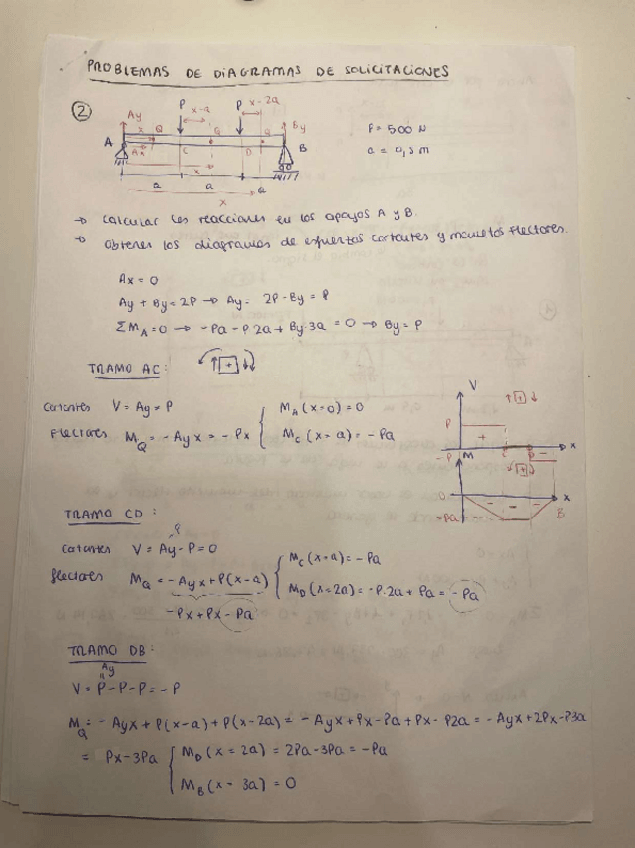 PROBLEMAS DE DIAGRAMAS DE SOLICITACIONES
②
Ay P x-a P x-2a By
A x Q Q Q B
Ax C D
x
a a a
x
P = 500 N
→ Calcular las reacciones en los apoyos A y B.
→ Obtener los diagramas de esfuerzos cortantes y momentos flectores.
Ax = 0
Ay + By = 2P → Ay = 2P - By = P
ΣM_A = 0 → -Pa - P 2a + By·3a = 0 → By = P
TRAMO AC:
+
Cortantes V = Ay = P
Flectores M_Q = -Ay x = -Px
M_A (x=0) = 0
M_C (x=a) = -Pa
V
P + x
-P -
M
0 - - - x
-Pa B
TRAMO CD:
P
Cortantes V = Ay - P = 0
flectores M_Q = -Ay x + P(x-a)
-Px + Px - Pa
M_C (x=a) = -Pa
M_D (x=2a) = -P·2a + Pa = -Pa
TRAMO DB:
Ay
V = P - P - P = -P
M_Q = -Ayx + P(x-a) + P(x-2a) = -Ayx + Px - Pa + Px - P2a = -Ayx + 2Px - P3a
= Px - 3Pa
M_D (x = 2a) = 2Pa - 3Pa = -Pa
M_B (x = 3a) = 0